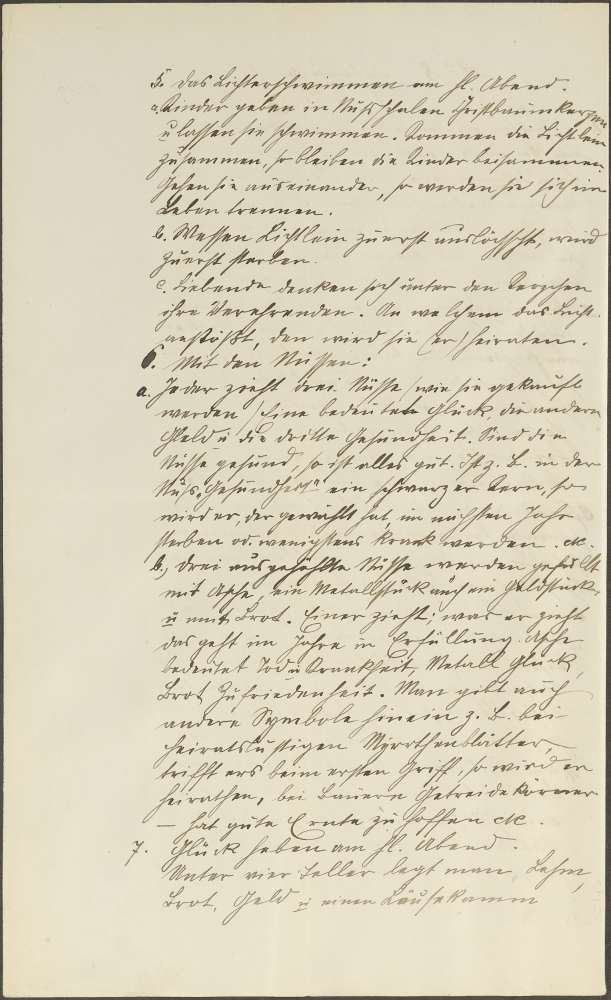 5. Das Lichterschwimmen am hl. Abend.
a. Kinder geben in Nußschalen Christbaumkerzen
u lassen sie schwimmen. Kommen die Lichtlein
zusammen, so bleiben die Kinder beisammen.
Gehen sie auseinander, so werden sie sich im
Leben trennen.
b. Wessen Lichtlein zuerst auslöscht, wird
zuerst sterben.
c. Liebende denken sich unter den Kerzchen
ihre Verehrenden. An welchem das Licht
anstößt, den wird sie (er) heiraten.
6. Mit den Nüssen:
a. Jeder zieht drei Nüsse (wie sie gekauft
werden) Eine bedeutete Glück, die andere
Geld u die dritte Gesundheit. Sind die
Nüsse gesund, so ist alles gut. Ist z. B. in der
Nuß „Gesundheit" ein schwarzer Kern, so
wird er, der gewählt hat, im nächsten Jahr
sterben od. wenigstens krank werden. etc.
b., Drei ausgehöhlte Nüsse werden gefüllt
mit Asche, ein Metallstück auch ein Geldstück,
u mit Brot. Einer zieht; was er zieht
das geht im Jahre in Erfüllung. Asche
bedeutet Tod u Krankheit, Metall Glück,
Brot Zufriedenheit. Man gibt auch
andere Symbole hinein z. B. bei
heiratslustigen Myrthenblätter,
trifft ers beim ersten Griff, so wird er
heirathen, bei Bauern Getreidekörner
— hat gute Ernte zu hoffen etc.
7. Glück haben am hl. Abend.
Unter vier Teller legt man, Lehm,
Brot, Geld u einen Läusekamm